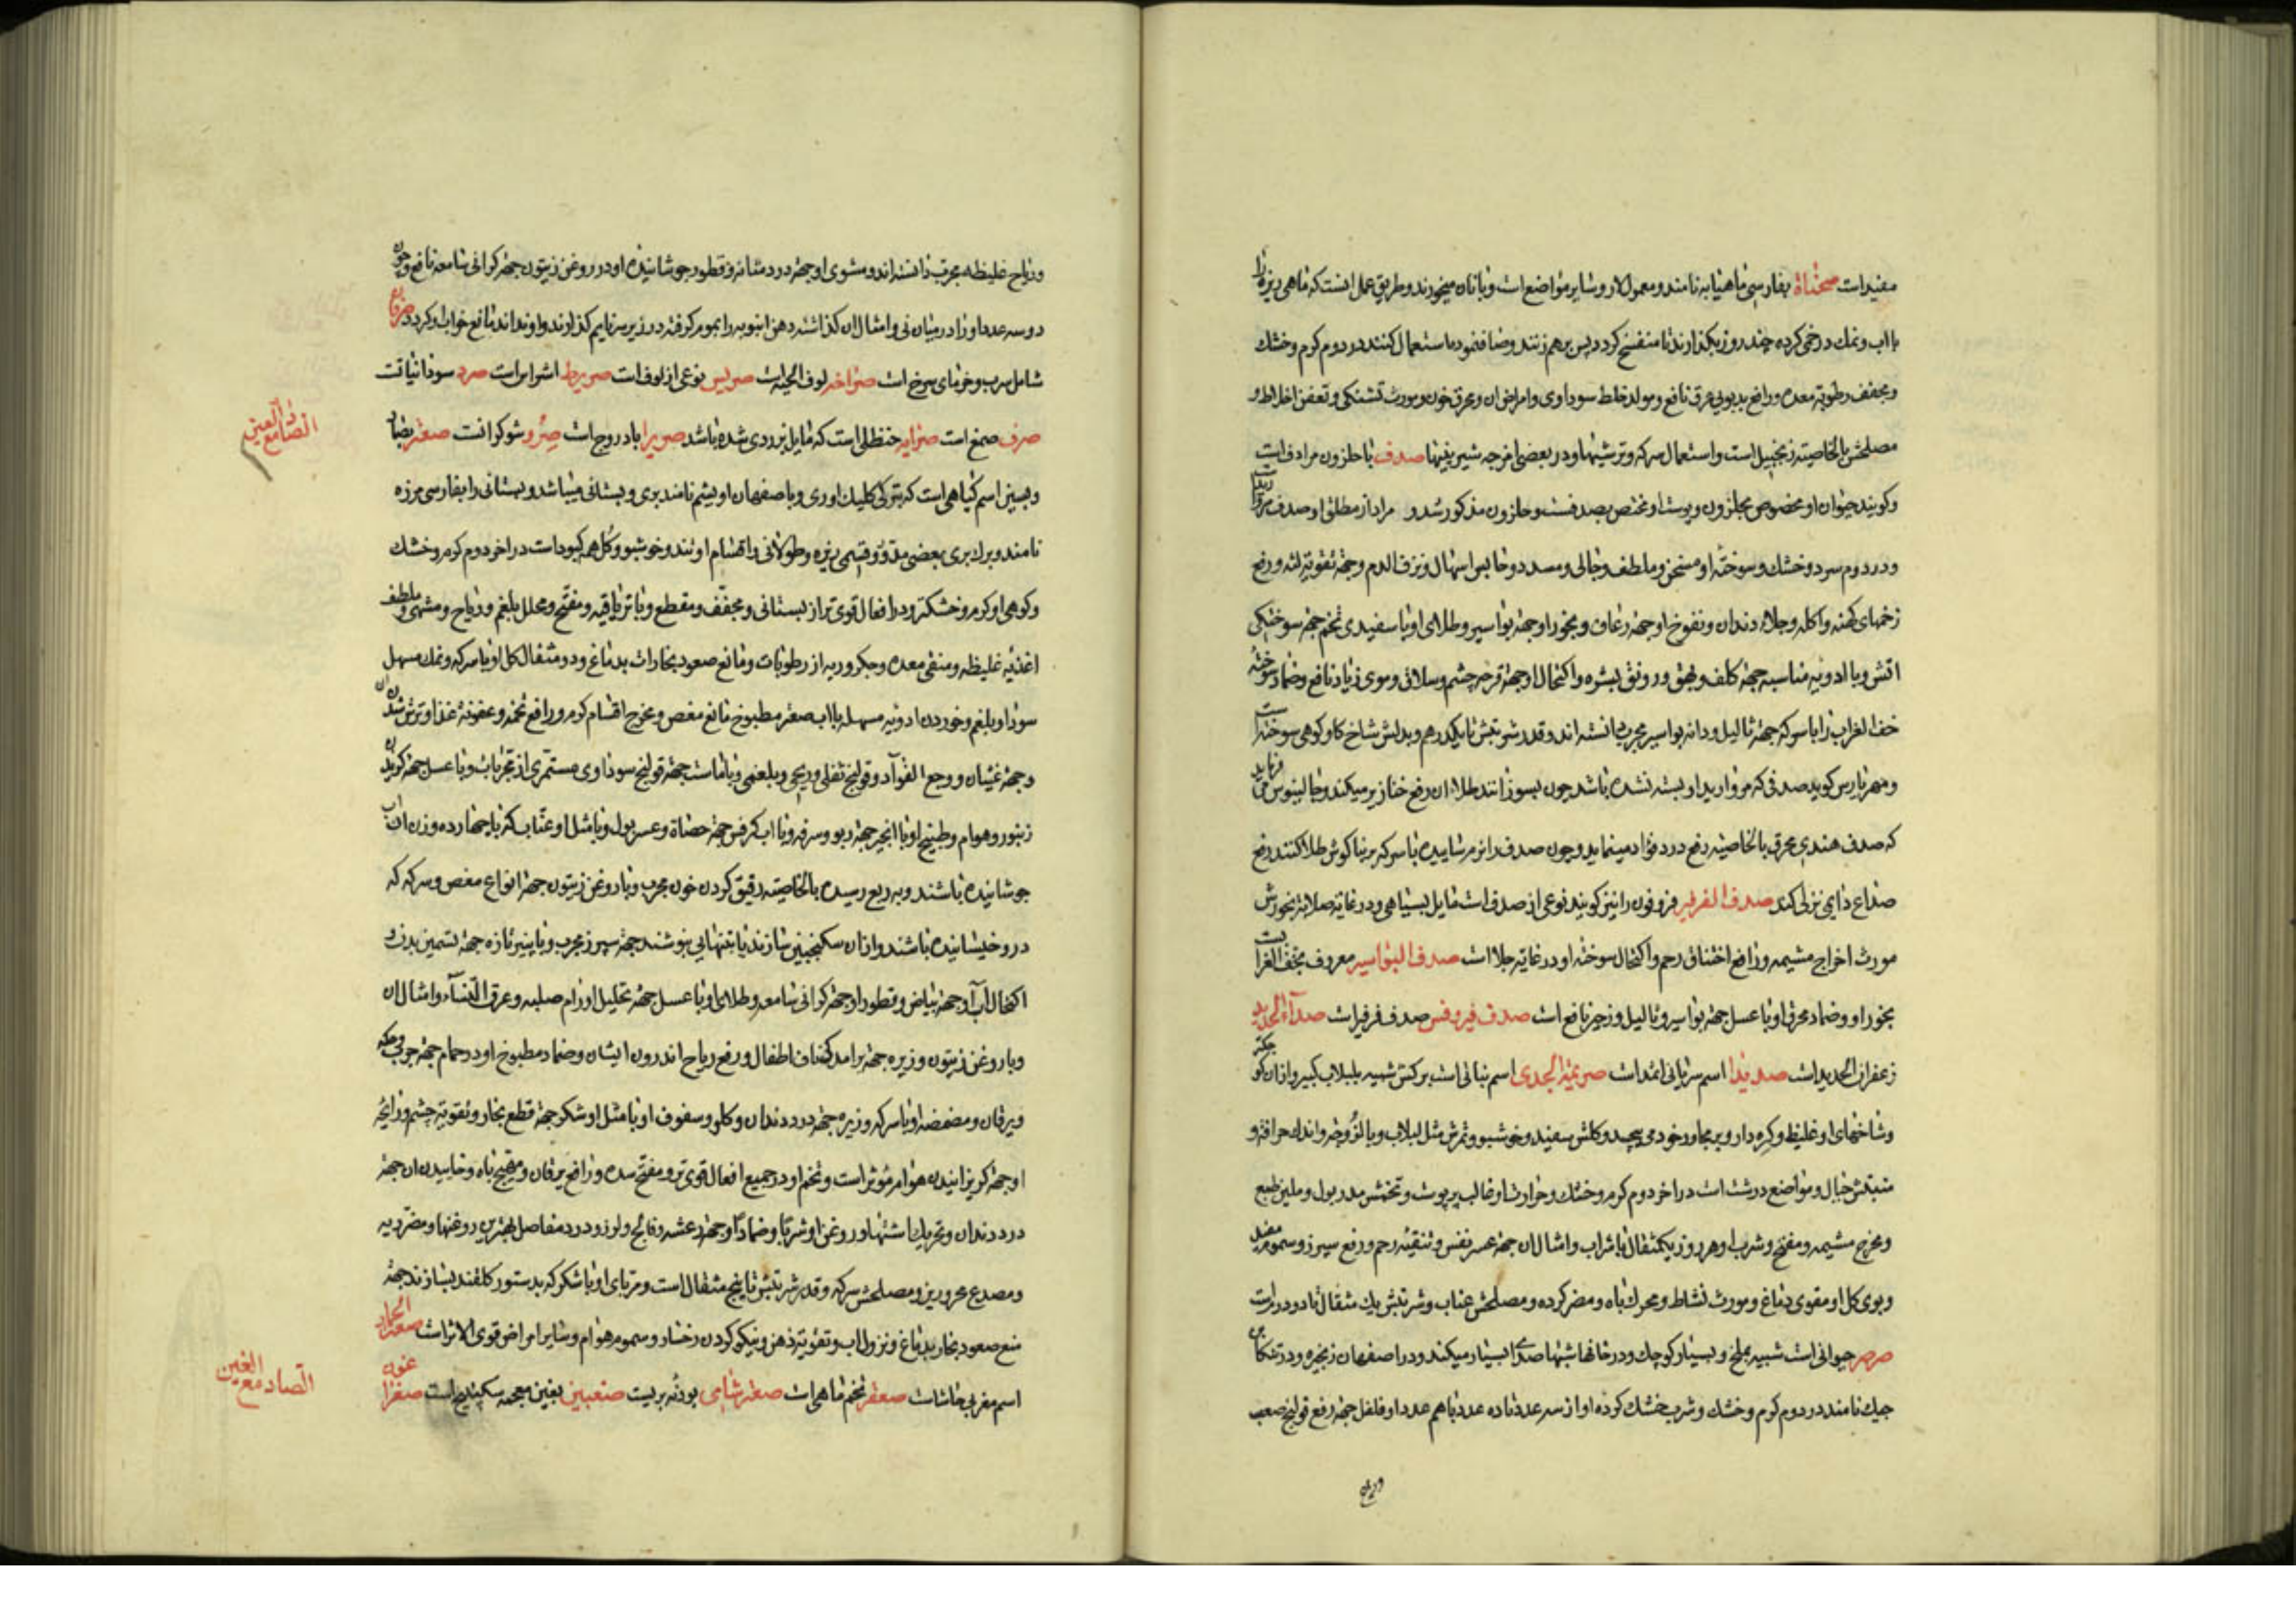 مفیدات صحناة بفارسی ماهیابه نامند و معمول لار و سایر مواضع است و با نان میخورند و طریق عمل انست که ماهی ریزه را
با اب و نمك در خمی کرده چند روز بکذارند تا متفسخ کردد پس برهم زنند و صاف نموده استعمال کنند در دوم کرم و خشك
و مجفف رطوبة معده و رافع بدبویی عرق نافع و مولد خلط سوداوی و امراض ان و محرق خون و مورث تشنکی و تعفن اخلاط و
مصلحش بالخاصیته زنجبیل است و استعمال سرکه و ترشیها و در بعضی امزجه شیرینیها صدف با حلزون مرادف است
و کویند حیوان او مخصوص بحلزون و پوست او مختص بصدفست و حلزون مذکور شد و مراد از مطلق او صدف مروارید است
و در دوم سرد و خشك و سوخته او مسخن و ملطف و جالی و مسدد و حابس اسهال و نزف الدم و جهة تقویة لثه و رفع
زخمهای کهنه و اکله و جلای دندان و نفوخ او جهة رعاف و بخور او جهة بواسیر و طلای او با سفیدی تخم جهة سوختکی
اتش و با ادویه مناسبه جهة کلف و بهق و رونق بشره و اکتحال او جهة قرحه چشم و سلاق و موی زیاد نافع و ضماد سوخته
خف الغراب را با سرکه جهة ثالیل و دانه بواسیر مجرب دانسته اند و قدر شربتش تا یکدرهم و بدلش شاخ کاو کوهی سوخته است
و مهراریس کوید صدفی که مروارید او بسته نشده باشد چون بسوزانند طلاء ان رفع خنازیر میکند و جالینوس می فرماید
که صدف هندی محرق بالخاصیه رفع درد فؤاد مینماید و چون صدف را نرم ساییده با سرکه بر بناکوش طلا کنند رفع
صداع نزلی کند صدف الفرفیر فرفون را نیز کویند نوعی از صدف است مایل بسیاهی و در غایة صلابة بخورش
مورث اخراج مشیمه و رافع اختناق رحم و اکتحال سوخته او در غایة جلا است صدف البواسیر معروف بخف الغراب است
بخور او و ضماد محرق او با عسل جهة بواسیر و ثالیل و زحیر نافع است صدف فیروفس صدف فرفیر است صدأ الحدید
زعفران الحدید است صدیدا اسم سریانی اثمد است صریمة الجدی اسم نباتی است برکش شبیه بلبلاب کبیر و ازان کوچکتر
و شاخهای او غلیظ و کره دار و بر مجاور خود می پیچد و کلش سفید و خوشبو و ثمرش مثل لبلاب و با لزوجه و اندك حرافة و
منبتش جبال و مواضع درشت است در اخر دوم کرم و خشك و حرارت او غالب بر یبوست و تخمش مدر بول و ملین طبع
و مخرج مشیمه و مفتح و شرب او هر روز یکمثقال با شراب و امثال ان جهة عسر نفس و تنقیه رحم و رفع سپرز و سموم مفید
و بوی کل او مقوی دماغ و مورث نشاط و محرك باه و مضر کرده و مصلحش عناب و شربتش یك مثقال تا دو درم است
صرصر حیوانی است شبیه بملخ و بسیار کوچك و در خانها شبها صدای بسیار میکند و در اصفهان زنجیره و در تنکابن
جیك نامند در دوم کرم و خشك و شرب خشك کرده او از سه عدد تا ده عدد با هم عدد او فلفل جهة رفع قولنج صعب
و ریاح
و ریاح غلیظه مجرب دانسته اند و مشوی او جهة درد مثانه و قطور جوشانیده او در روغن زیتون جهة کرانی سامعه نافع و چون
دو سه عدد او را در میان نی و امثال ان کذاشته دهن انبوبه را بموم کرفته در زیر سر نایم کذارند و او نداند مانع خواب او کردد صرفان
شامل سرب و خرمای سرخ است صراخه لوف الحیه است صریس نوعی از لوف است صریرط اشراس است صرد سودانیات
صرف صمغ است صرایه حنظلی است که مایل بزردی شده باشد صریرا بادروج است صرو شوکرانست صعتر بضاد
و بسین اسم کیاهی است که بترکی کلیك اوتی و باصفهان اویشم نامند بری و بستانی میباشد و بستانی را بفارسی مرزه
نامند و برك بری بعضی مدور و قسمی ریزه و طولانی و اقسام او تند و خوشبو و کل همه کبود است در اخر دوم کرم و خشك
و کوهی او کرم و خشکتر و در افعال قوی تر از بستانی و مجفف و مقطع و با تریاقیه و مفتح و محلل بلغم و ریاح و مشهی و ملطف
اغذیه غلیظه و منقی معده و جکر و ریه از رطوبات و مانع صعود بخارات بدماغ و دو مثقال کل او با سرکه و نمك مسهل
سودا و بلغم و خوردن ادویه مسهله با اب صعتر مطبوخ مانع مغص و مخرج اقسام کرم و رافع تخمه و عفونة غذا و ترش شدن ان
و جهة غثیان و وجع الفوآد و قولنج ثفلی و ریحی و بلغمی و با ماست جهة قولنج سوداوی مستمری از مجربات و با عسل جهة کزیدن
زنبور و هوام و طبیخ او با انجیر جهة ربو و سرفه و با اب کرفس جهة حصاة و عسر بول و با مثل او عناب که با چهارده وزن ان اب
جوشانیده باشند و به ربع رسیده بالخاصیته رقیق کردن خون مجرب و با روغن زیتون جهة انواع مغص و سرکه که
درو خیسانیده باشند و ازان سکنجبین سازند یا بتنهایی بنوشند جهة سپرز مجرب و با پنیر تازه جهة تسمین بدن و
اکتحال اب او جهة بیاض و قطور او جهة کرانی سامعه و طلای او با عسل جهة تحلیل اورام صلبه و عرق النسآء و امثال ان
و با روغن زیتون و زیره جهة برامدن ناف اطفال و رفع ریاح اندرون ایشان و ضماد مطبوخ او در حمام جهة جرب و حکه
و یرقان و مضمضه او با سرکه و زیره جهة درد دندان و کلو و سفوف او با مثل او شکر جهة قطع بخار و تقویة چشم و رایحه
او جهة کریزانیدن هوام مؤثر است و تخم او در جمیع افعال قوی تر و مفتح سده و رافع یرقان و مهیج باه و خاییدن ان جهة
درد دندان و تحریك اشتها و روغن او شربا و ضمادا و جهة رعشه و فالج و لرز و درد مفاصل بهترین روغنها و مضر ریه
و مصدع محرورین و مصلحش سرکه و قدر شربتش تا پنج مثقال است و مربای او با شکر که بدستور کلقند بسازند جهة
منع صعود بخار بدماغ و نزول اب و تقویة ذهن و نیکو کردن رخسار و سموم هوام و سایر امراض قوی الاثر است صعتر الحمار
اسم مغربی حاشات صعفر تخم ماهی است صعتر شامی پودنه بریست صغبین بغین معجمه سکبینج است صغرا غون
الصاد مع العین
الصاد مع الغین